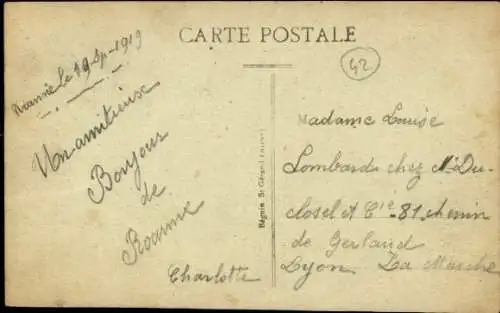 CARTE POSTALE
42
Roanne le 19 Sp-1919
Un amitieux
Bonjour
de
Roanne
Charlotte
Madame Louise
Lombard chez Mr Du-
closel et Cie 81 chemin
de Gerland
Lyon La Mouche